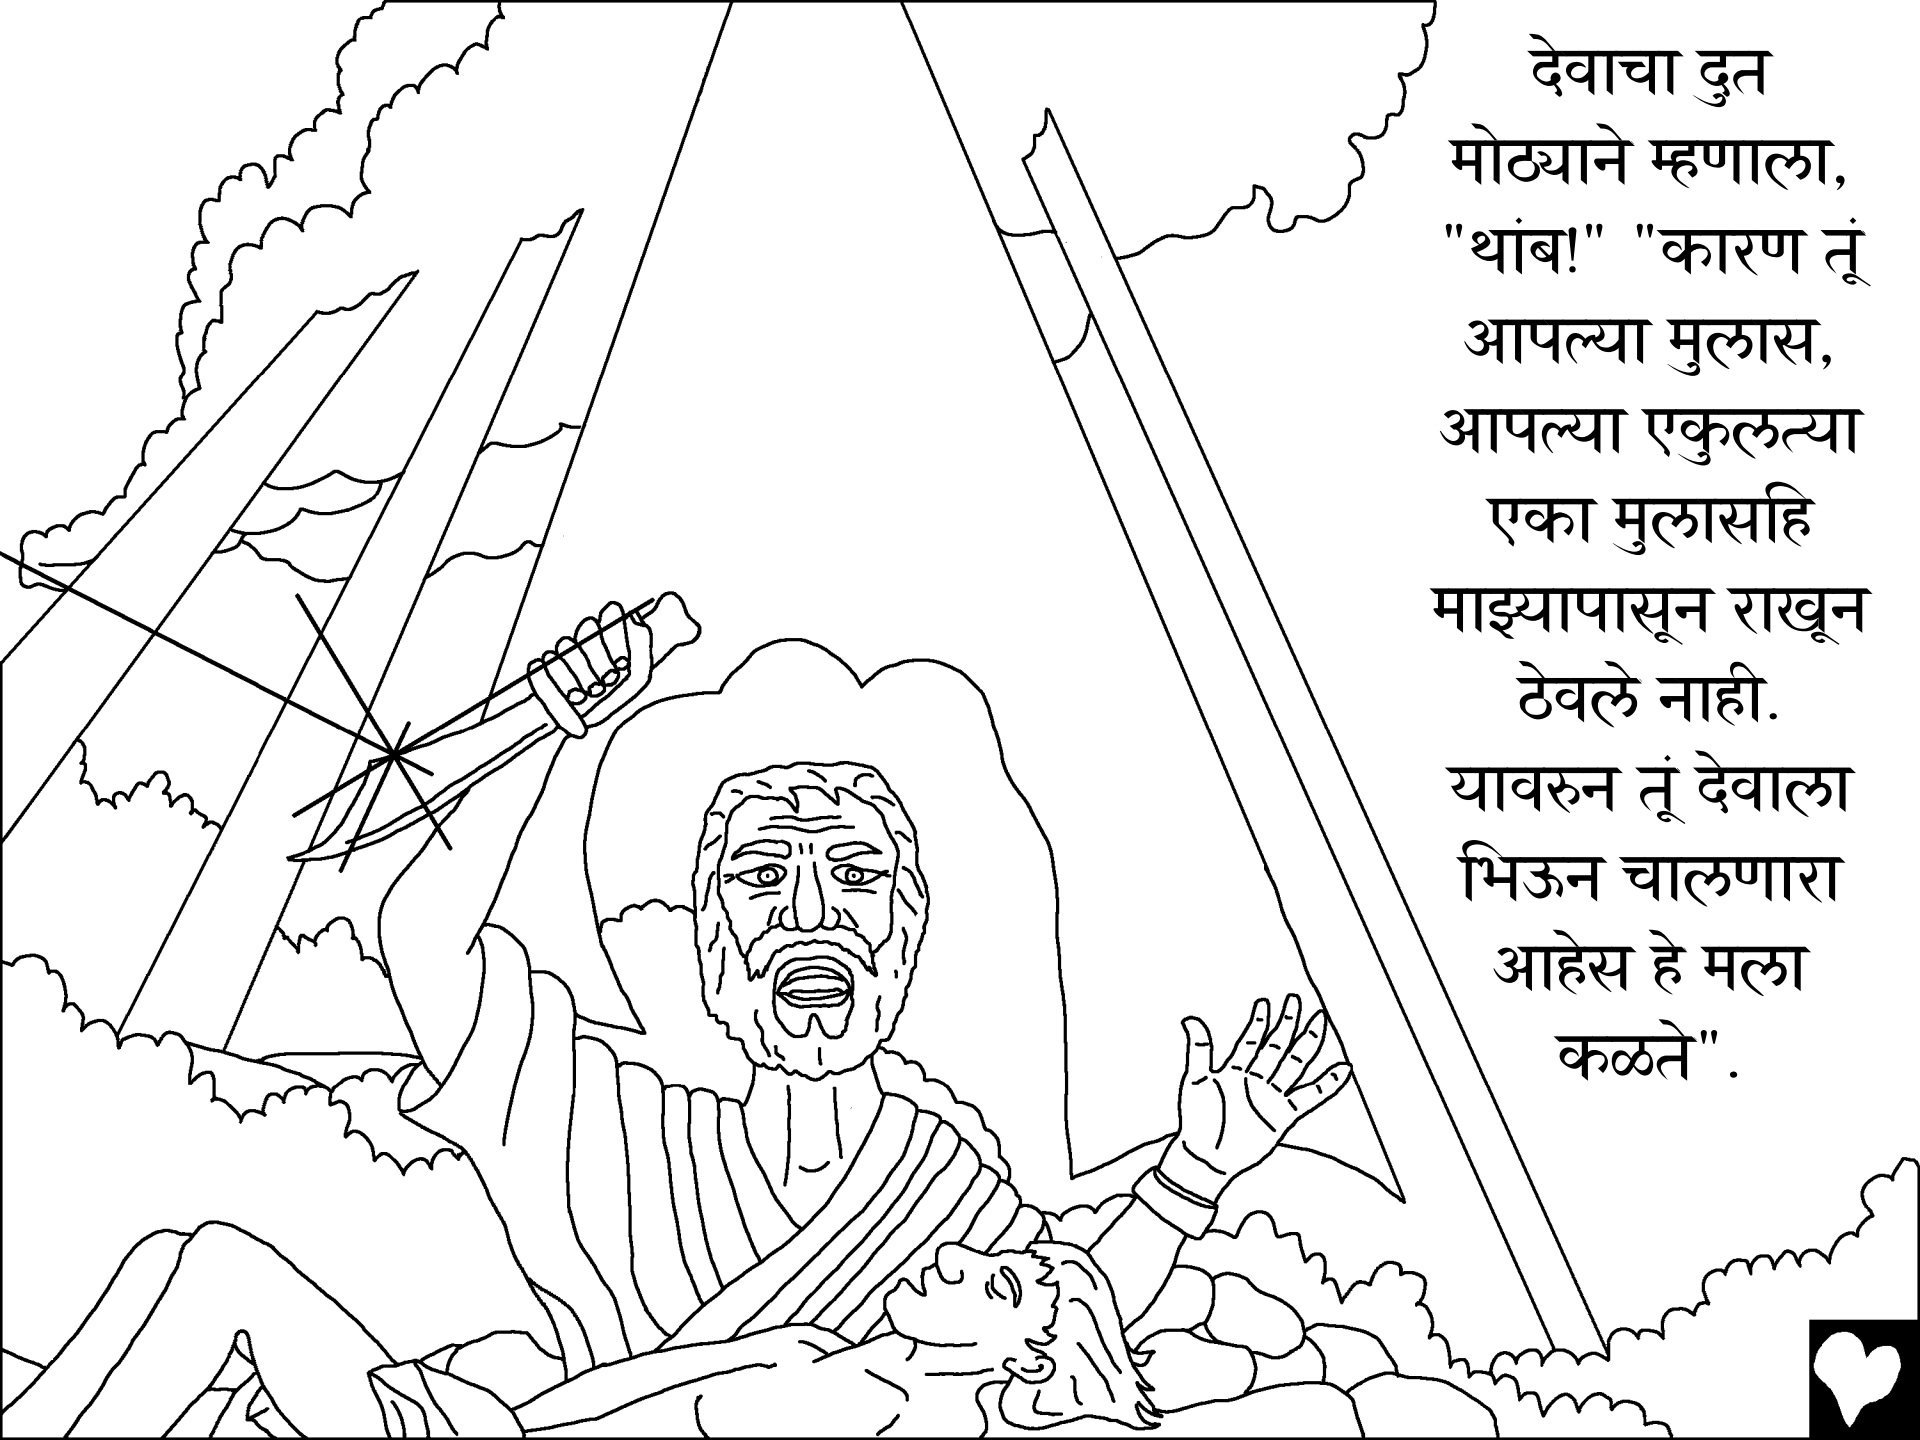 देवाचा दुत
मोठ्याने म्हणाला,
"थांब!" "कारण तूं
आपल्या मुलास,
आपल्या एकुलत्या
एका मुलासहि
माझ्यापासून राखून
ठेवले नाही.
यावरुन तूं देवाला
भिऊन चालणारा
आहेस हे मला
कळते".